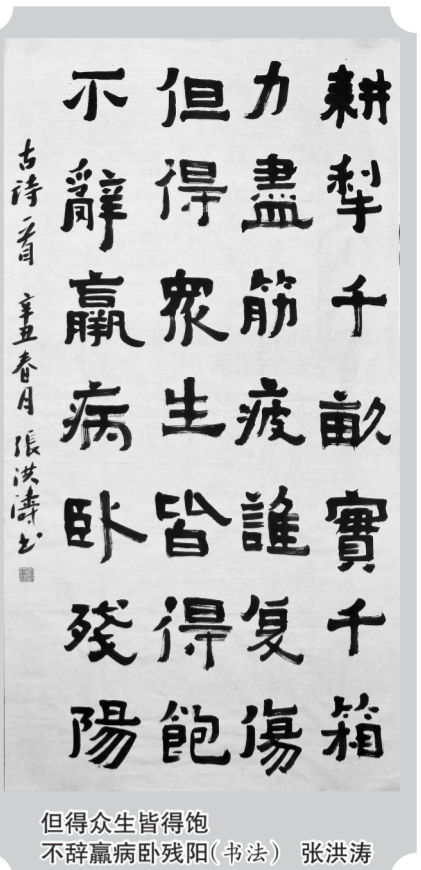 耕犁千畝實千箱
力盡筋疲誰复傷
但得眾生皆得飽
不辭羸病卧殘陽
古詩一首 辛丑春月 張洪濤书
但得众生皆得饱
不辞羸病卧残阳(书法) 张洪涛